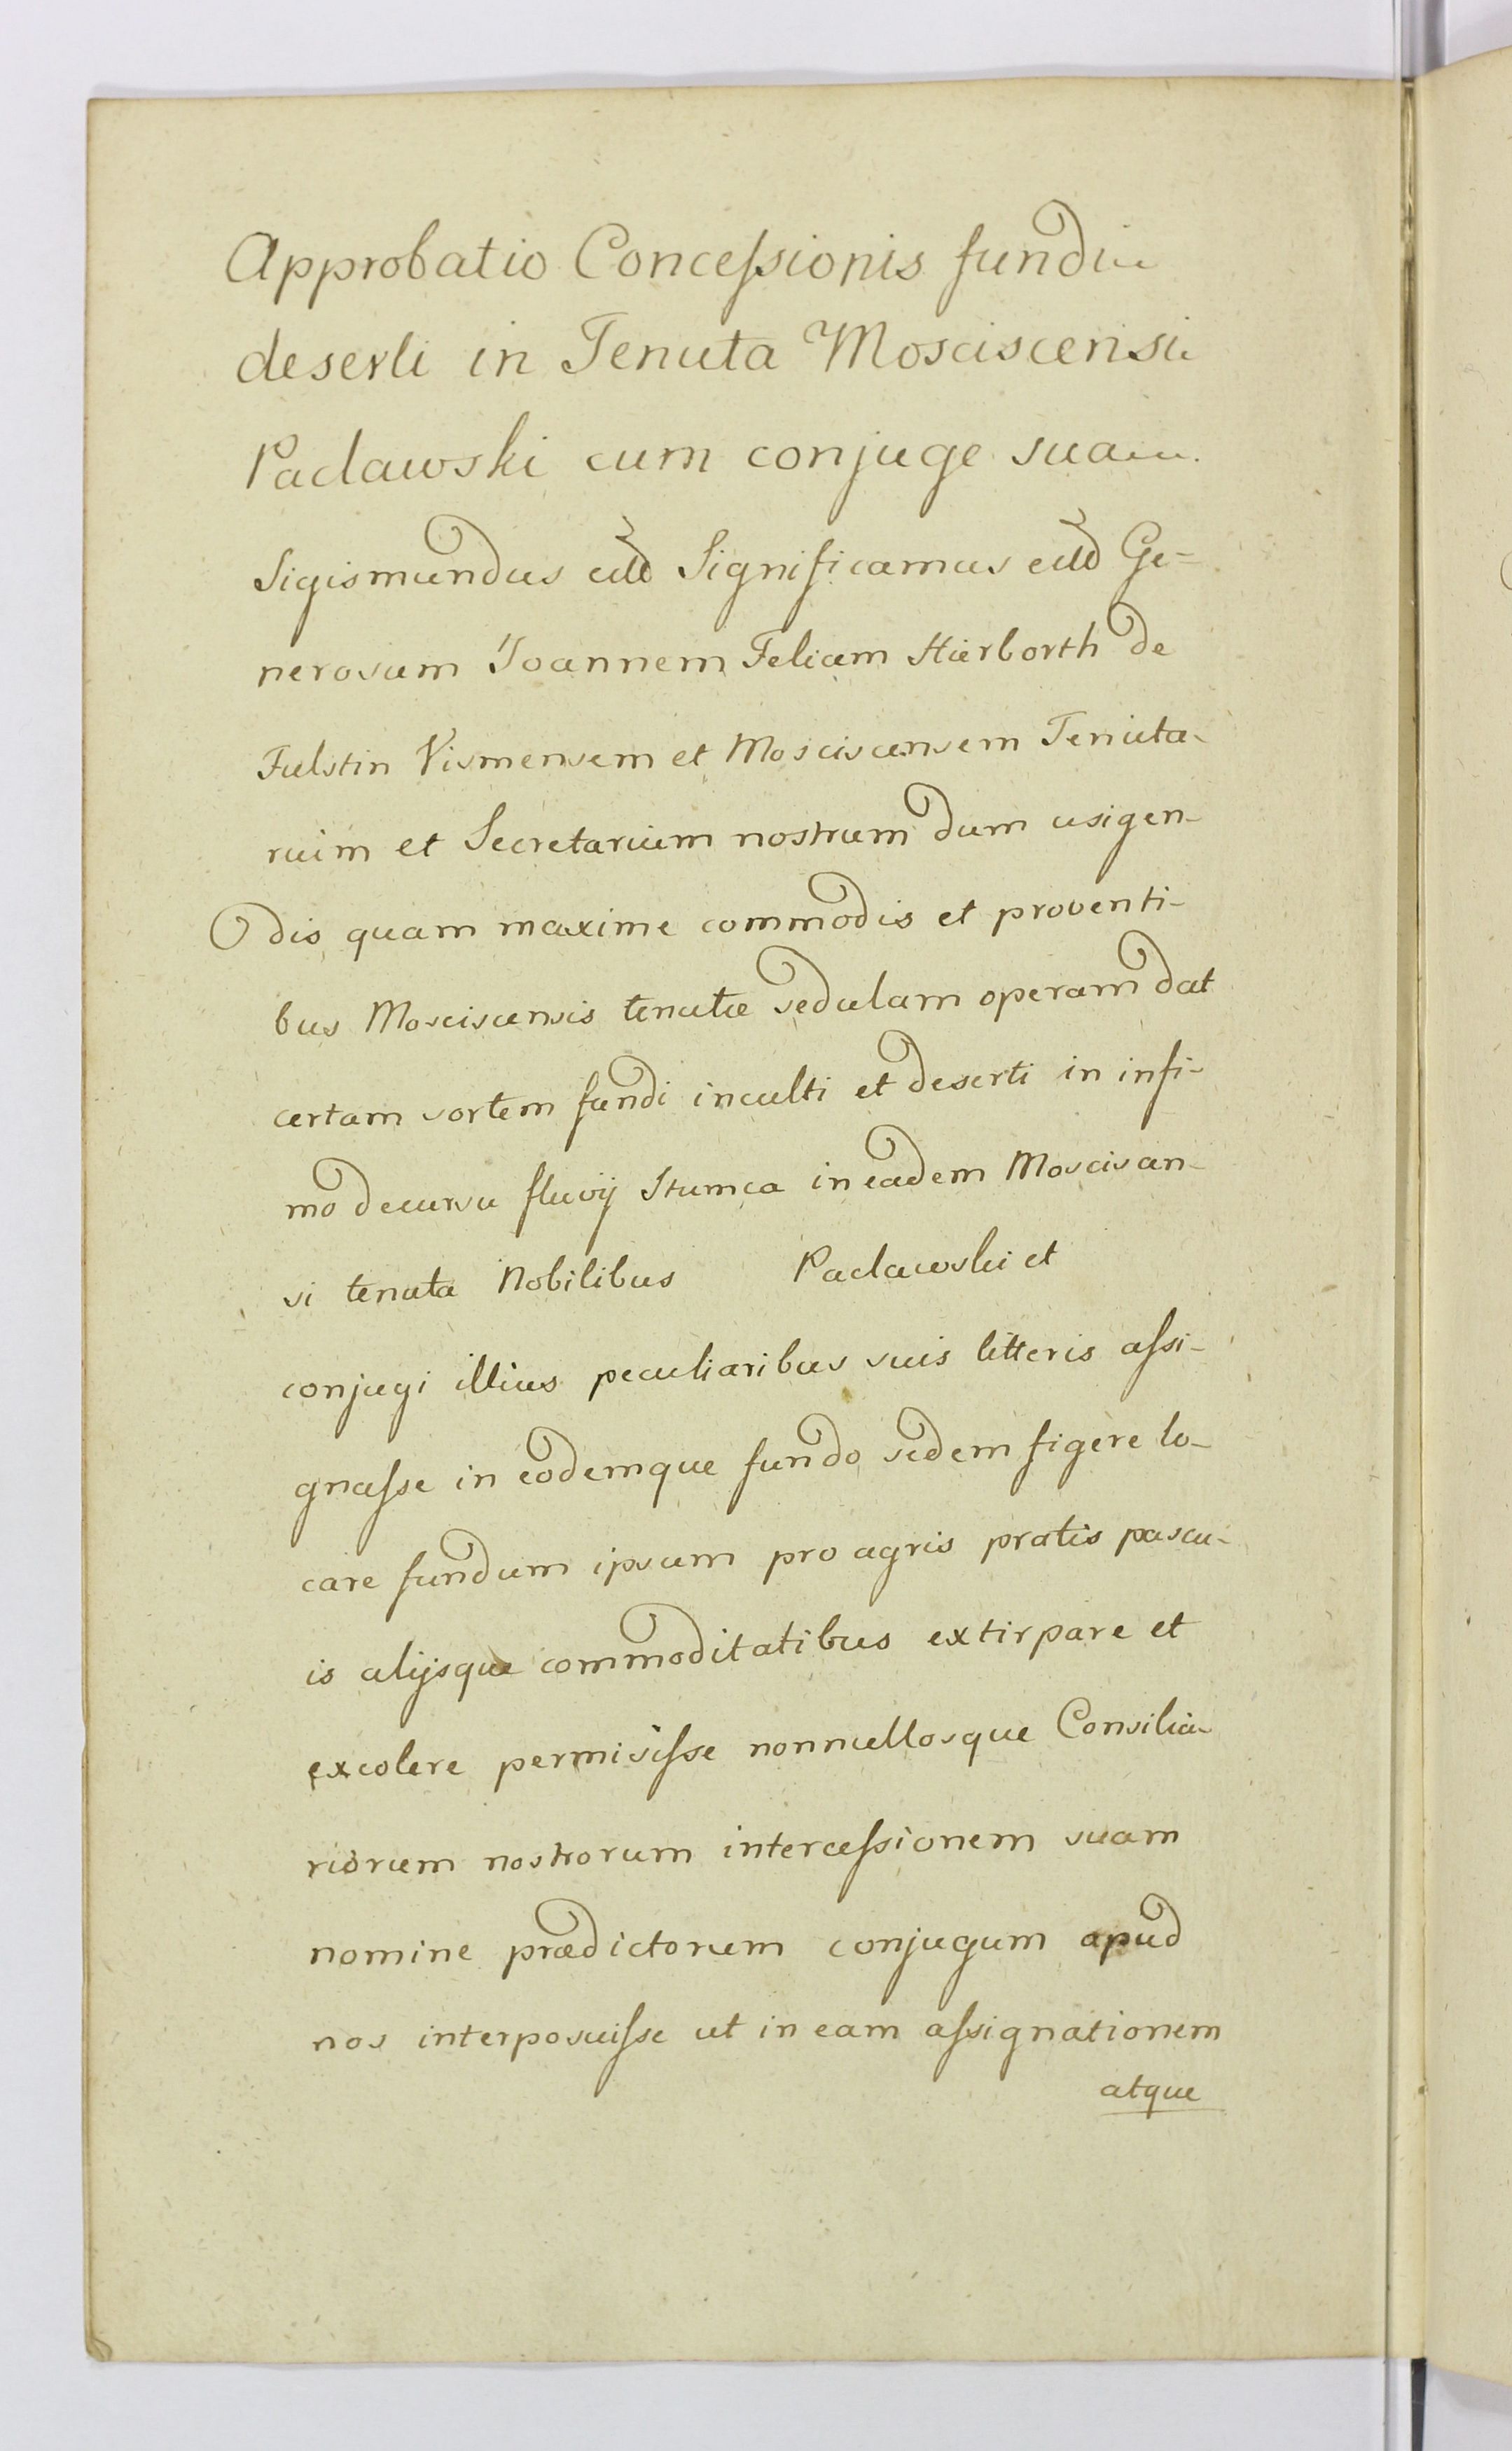 Approbatio Concessionis fundi
deserti in Tenuta Mosciscensi
Paclawski cum conjuge sua.
Sigismundus Significamus Ge-
nerosum Joannem Felicem Hierborth de
Fulstin Vismensem et Mosciscensem Tenuta-
rium et Secretarium nostrum dum usigen-
dis quam maxime commodis et proventi-
bus Mosciscensis tenutæ sedulam operam dat
certam sortem fundi inculti et deserti in infi-
mo decursu fluvij Stumca in eadem Mosciscen-
si tenuta Nobilibus Paclawski et
conjugi illius peculiaribus suis litteris assi-
gnasse in eodemque fundo sedem figere lo-
care fundum ipsum pro agris pratis pascu-
is alijsque commoditatibus extirpare et
excolere permisisse nonnullosque Consilia-
riorum nostrorum intercessionem suam
nomine prædictorum conjugum apud
nos interposuisse ut in eam assignationem
atque